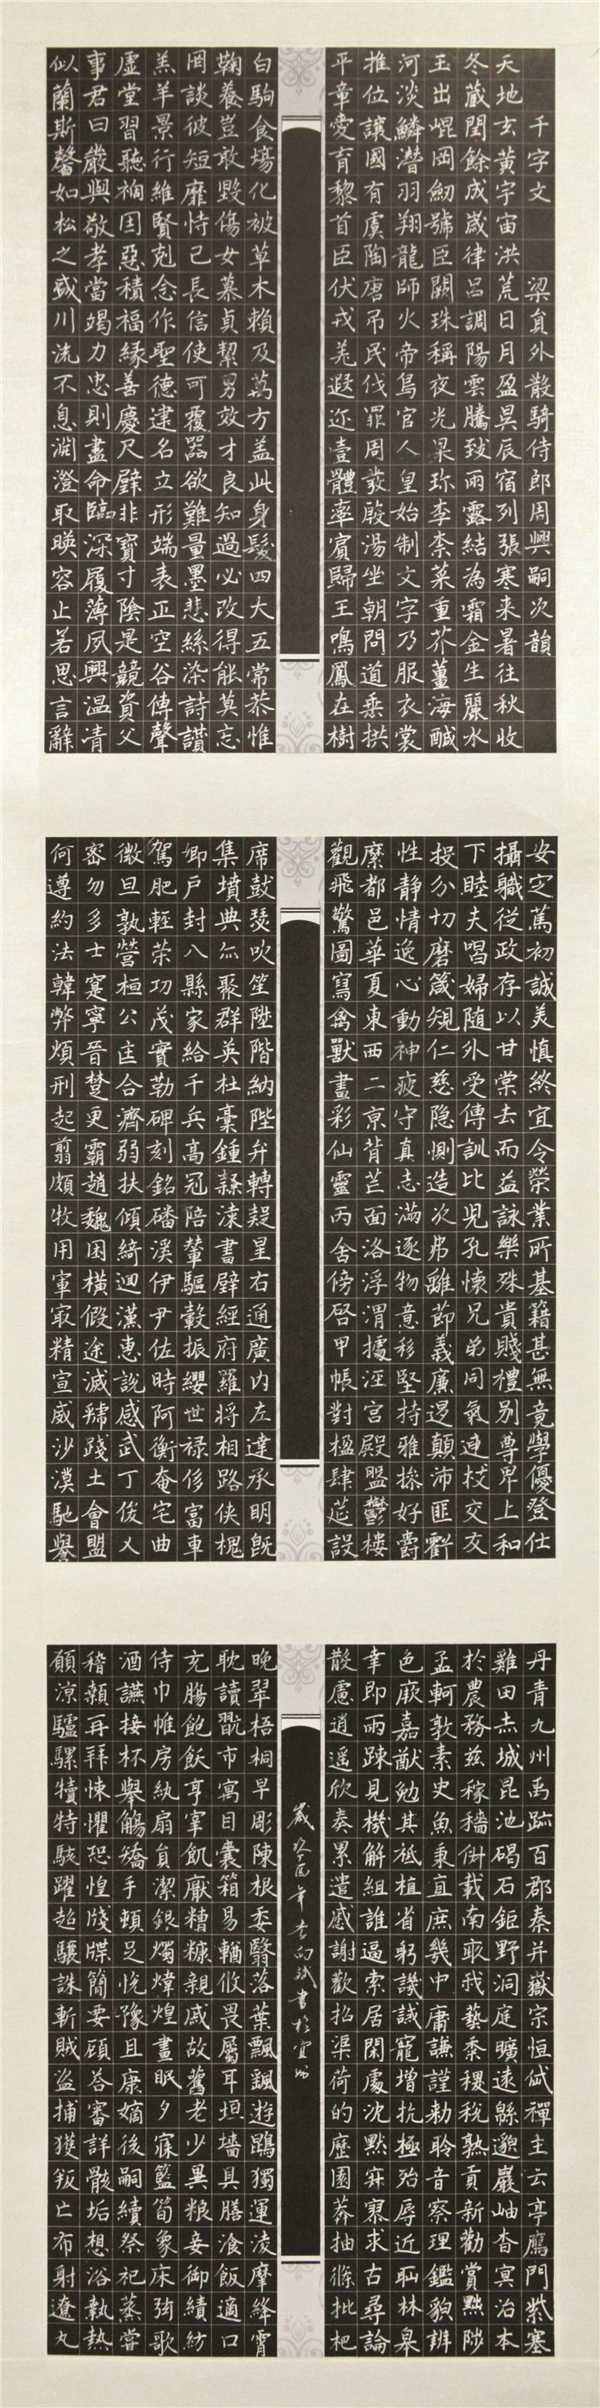 千字文　梁員外散騎侍郎周興嗣次韻
天地玄黃宇宙洪荒日月盈昃辰宿列張寒来暑往秋收
冬藏閏餘成歲律呂調陽雲騰致雨露結為霜金生麗水
玉出崐岡劒號巨闕珠稱夜光果珍李柰菜重芥薑海鹹
河淡鱗潛羽翔龍師火帝鳥官人皇始制文字乃服衣裳
推位讓國有虞陶唐吊民伐罪周發殷湯坐朝問道垂拱
平章愛育黎首臣伏戎羌遐迩壹體率賓歸王鳴鳳在樹
白駒食場化被草木賴及萬方盖此身髮四大五常恭惟
鞠養豈敢毀傷女慕貞絜男效才良知過必改得能莫忘
罔談彼短靡恃己長信使可覆器欲難量墨悲絲染詩讚
羔羊景行維賢剋念作聖德建名立形端表正空谷傳聲
虛堂習聽禍因惡積福緣善慶尺璧非寶寸陰是競資父
事君曰嚴與敬孝當竭力忠則盡命臨深履薄夙興溫凊
似蘭斯馨如松之盛川流不息淵澄取暎容止若思言辭
安定篤初誠美慎終宜令榮業所基籍甚無竟學優登仕
攝職從政存以甘棠去而益詠樂殊貴賤禮別尊卑上和
下睦夫唱婦隨外受傅訓比兒孔懷兄弟同氣連枝交友
投分切磨箴規仁慈隐惻造次弗離節義廉退顛沛匪虧
性静情逸心動神疲守真志滿逐物意移堅持雅操好爵
縻都邑華夏東西二京背芒面洛浮渭據涇宮殿盤鬱樓
觀飛驚圖寫禽獸畫彩仙靈丙舍傍啓甲帳對楹肆筵設
席鼓瑟吹笙陞階納陛弁轉疑星右通廣内左達承明既
集墳典亦聚群英杜稾鍾隸漆書壁經府羅將相路俠槐
卿戶封八縣家給千兵高冠陪輦驅轂振纓世禄侈富車
駕肥輕策功茂實勒碑刻銘磻溪伊尹佐時阿衡奄宅曲
微旦孰營桓公匡合濟弱扶傾綺迴漢惠說感武丁俊乂
密勿多士寔寧晉楚更霸趙魏困橫假途滅虢踐土會盟
何遵約法韓弊煩刑起翦頗牧用軍最精宣威沙漠馳譽
丹青九州禹跡百郡秦并嶽宗恒岱禪主云亭鴈門紫塞
雞田赤城昆池碣石鉅野洞庭曠遠緜邈巖岫杳冥治本
於農務兹稼穡俶載南畝我藝黍稷稅熟貢新勸賞黜陟
孟軻敦素史魚秉直庶幾中庸謙謹勑聆音察理鑑貌辨
色厥嘉猷勉其祗植省躬譏誡寵增抗極殆辱近恥林皋
幸即兩疎見機解組誰逼索居閑處沈默寂寥求古尋論
散慮逍遙欣奏累遣慼謝歡招渠荷的歷園莽抽條枇杷
歲酉年向斌書於宜
晚翠梧桐早彫陳根委翳落葉飄颻遊鵾獨運凌摩絳霄
耽讀翫市寓目囊箱易輶攸畏屬耳垣牆具膳飡飯適口
充腸飽飫亨宰飢厭糟糠親戚故舊老少異粮妾御績紡
侍巾帷房紈扇員潔銀燭煒煌晝眠夕寐籃筍象床弦歌
酒讌接杯舉觴矯手頓足悅豫且康嫡後嗣續祭祀蒸嘗
稽顙再拜悚懼恐惶牋牒簡要顧答審詳骸垢想浴執熱
願涼驢騾犢特駭躍超驤誅斬賊盜捕獲叛亡布射遼丸